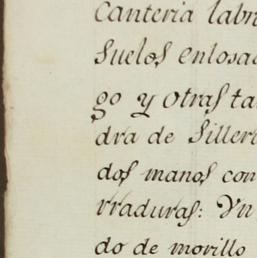 Canteria labr
suelos enlosad
go y otras ta
dra de Siller
dos manos con
rraduras: Yn
do de morillo